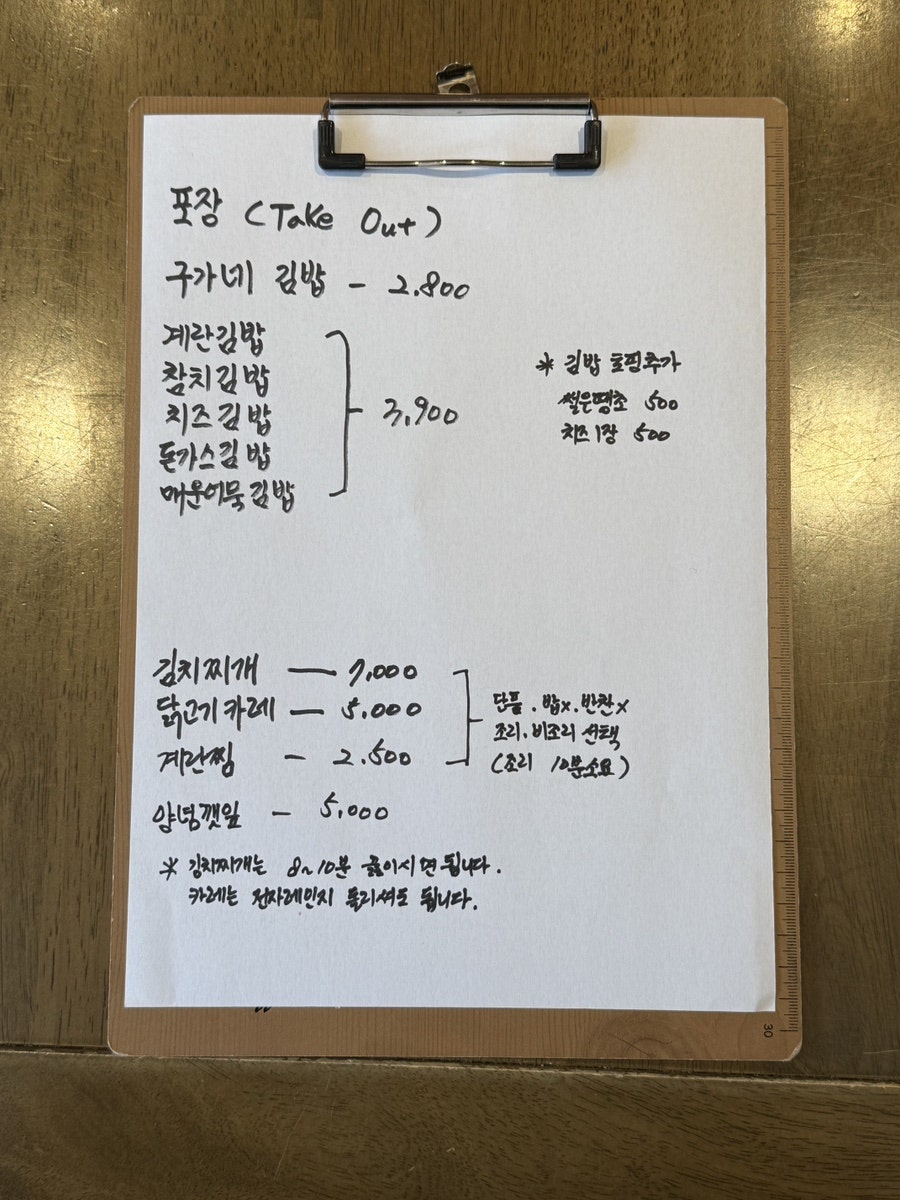 포장 (Take Out)
구가네 김밥 - 2.800
계란김밥
참치김밥
치즈김밥
돈가스김밥
매운어묵김밥
3,900
* 김밥 토핑추가
썰은땡초 500
치즈1장 500
김치찌개 — 7,000
닭고기카레 — 5.000
계란찜 - 2.500
단품. 밥x. 반찬x
조리. 비조리 선택
(조리 10분소요)
양념깻잎 - 5,000
* 김치찌개는 8~10분 끓이시면됩니다.
카레는 전자레인지 돌리셔도 됩니다.
30